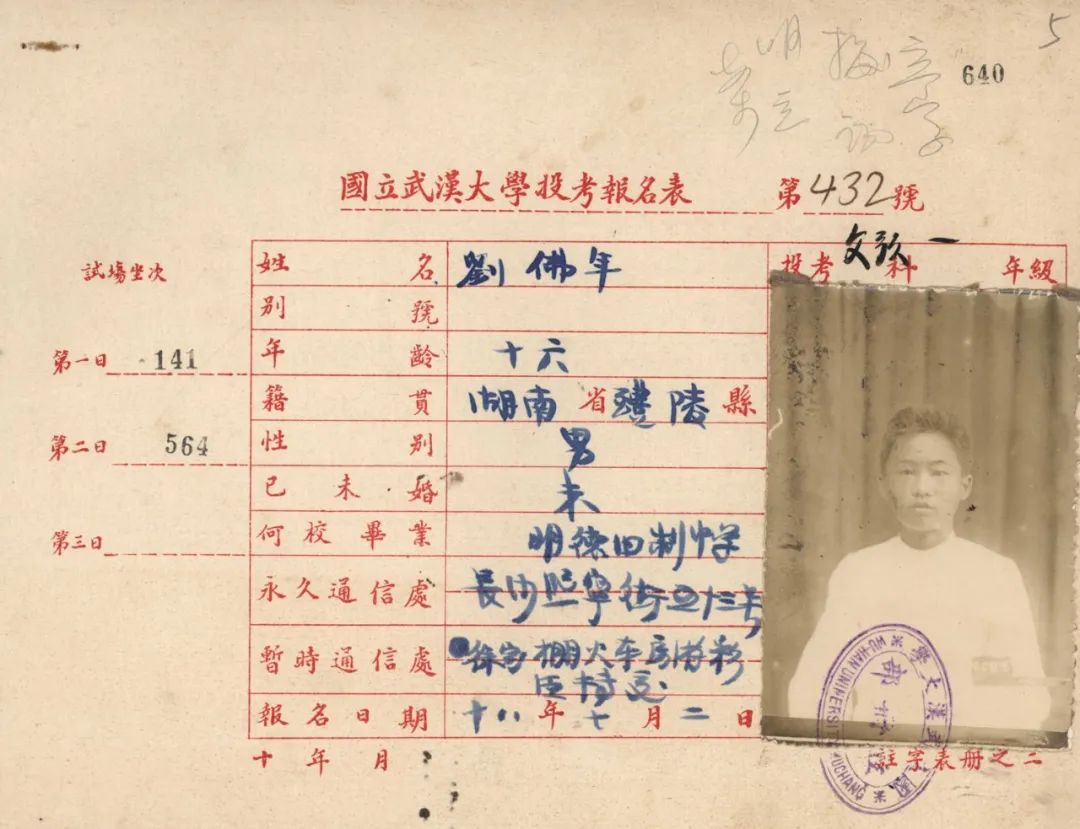 5
640
國立武漢大學投考報名表 第432號
試場坐次
第一日 141
第二日 564
第三日
投考文預科一年級
姓名 劉佛年
別號
年齡 十六
籍貫 湖南省醴陵縣
性別 男
已未婚 未
何校畢業 明德旧制中学
永久通信處 長沙熙寧街五十三号
暫時通信處 徐家棚火车房
報名日期 十八年七月二日
十年月
註字表册之二
WU-HAN UNIVERSITY WUCHANG